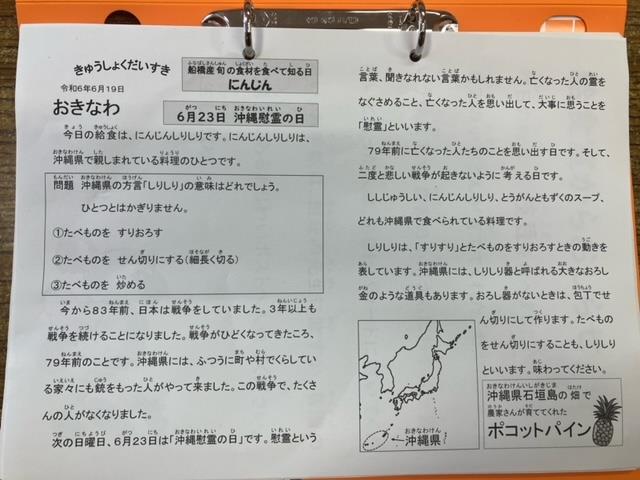 きゅうしょくだいすき
令和6年6月19日
おきなわ
船橋産旬の食材を食べて知る日
にんじん
6月23日 沖縄慰霊の日
今日の給食は、にんじんしりしりです。にんじんしりしりは、
沖縄県で親しまれている料理のひとつです。
問題 沖縄県の方言「しりしり」の意味はどれでしょう。
ひとつとはかぎりません。
①たべものを すりおろす
②たべものを せん切りにする(細長く切る)
③たべものを 炒める
今から83年前、日本は戦争をしていました。3年以上も
戦争を続けることになりました。戦争がひどくなってきたころ、
79年前のことです。沖縄県には、ふつうに町や村でくらしてい
る家々にも銃をもった人がやって来ました。この戦争で、たくさ
んの人がなくなりました。
次の日曜日、6月23日は「沖縄慰霊の日」です。慰霊という
言葉、聞きなれない言葉かもしれません。亡くなった人の霊を
なぐさめること、亡くなった人を思い出して、大事に思うことを
「慰霊」といいます。
79年前に亡くなった人たちのことを思い出す日です。そして、
二度と悲しい戦争が起きないように 考える日です。
ししじゅうしい、にんじんしりしり、とうがんともずくのスープ、
どれも沖縄県で食べられている料理です。
しりしりは、「すりすり」とたべものをすりおろすときの動きを
表しています。沖縄県には、しりしり器と呼ばれる大きなおろし
金のような道具もあります。おろし器がないときは、包丁でせ
ん切りにして作ります。たべもの
をせん切りにすることも、しりしり
といいます。味わってください。
沖縄県
沖縄県石垣島の畑で
農家さんが育ててくれた
ポコットパイン